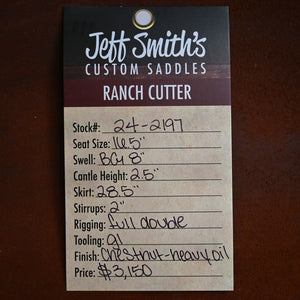 Jeff Smith's
CUSTOM SADDLES
RANCH CUTTER
Stock#: 24-2197
Seat Size: 16.5"
Swell: BCY 8"
Cantle Height: 2.5"
Skirt: 28.5"
Stirrups: 2"
Rigging: full double
Tooling: 91
Finish: Chestnut-heavy oil
Price: $3,150